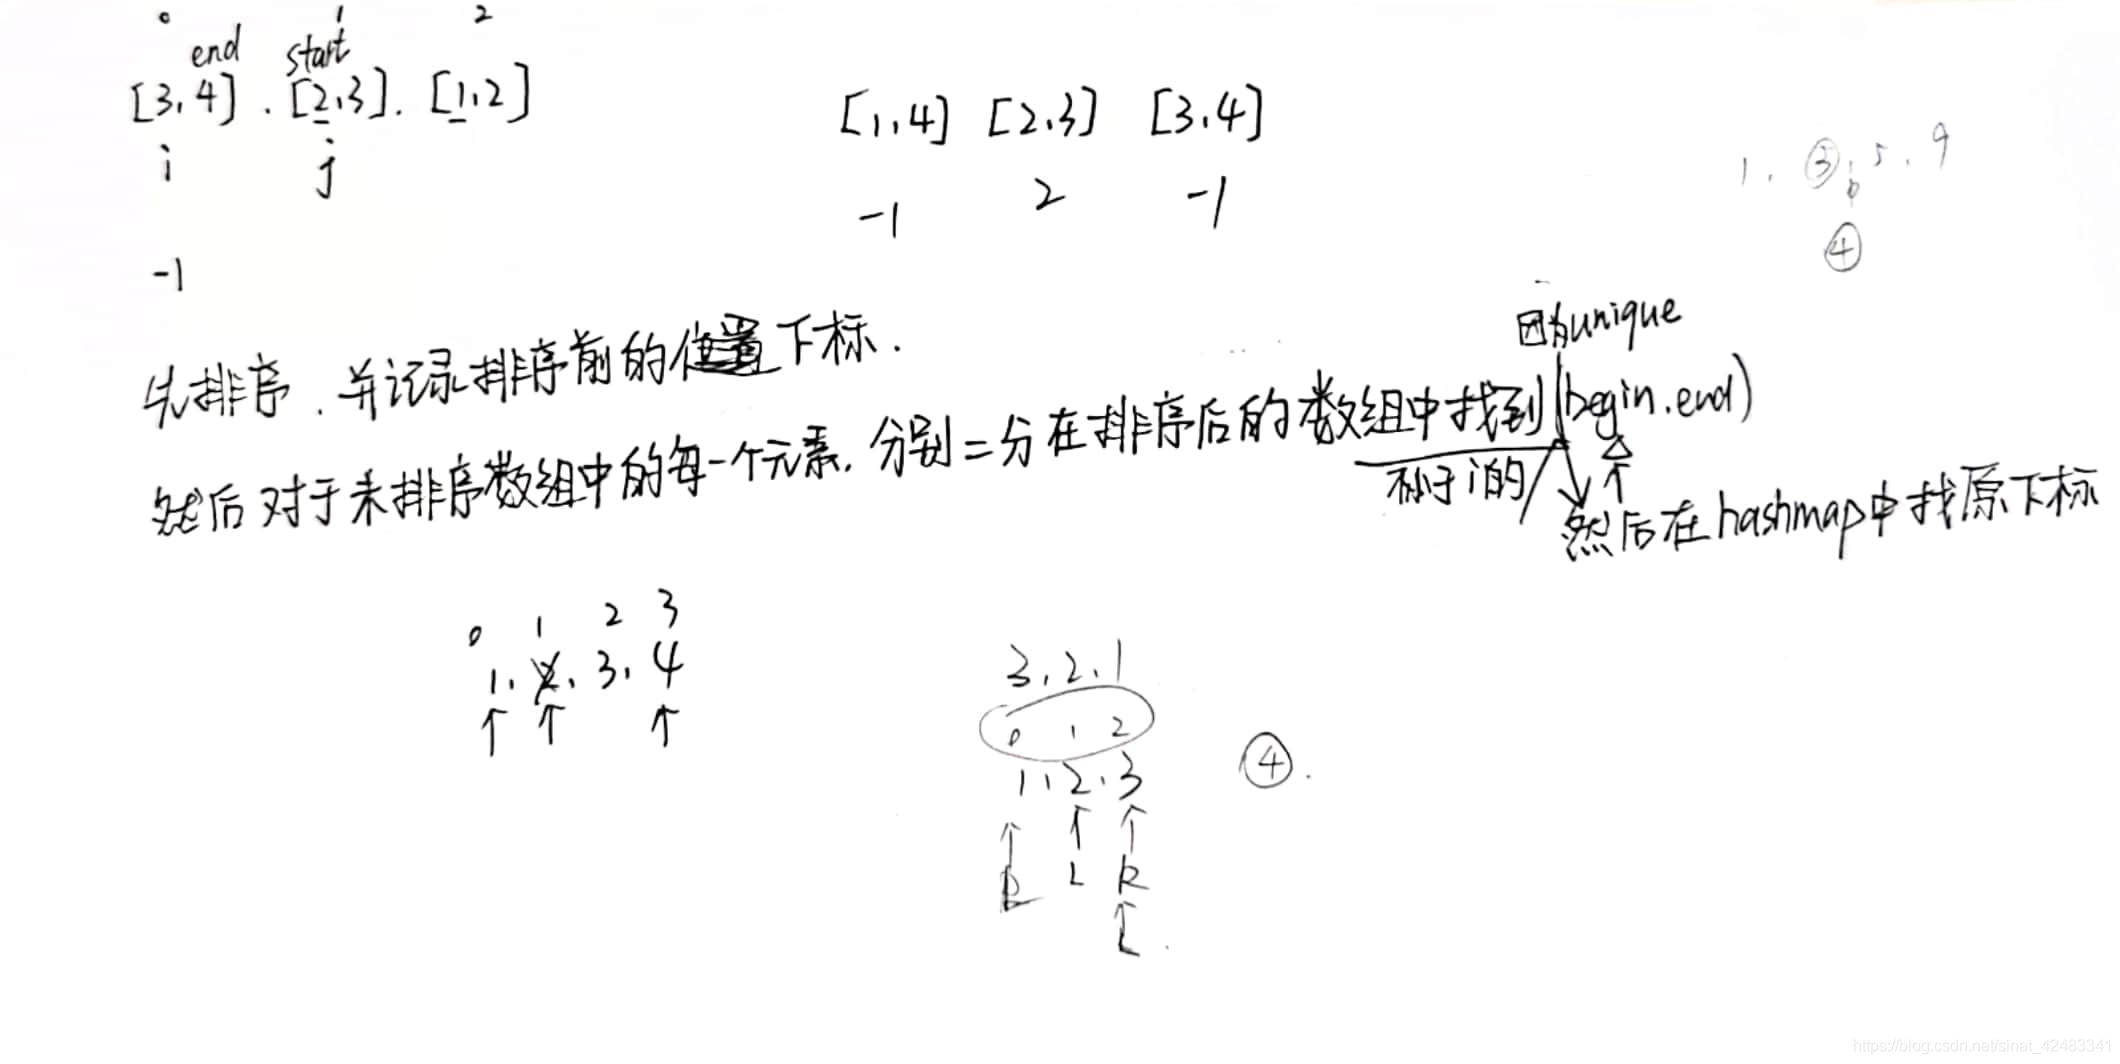 0 1 2
end start
[3,4] . [2,3]. [1,2]
i j
-1
[1,4] [2,3] [3,4]
-1 2 -1
1. ③, 5. 9
④
先排序. 并记录排序前的位置下标.
因为unique
然后对于未排序数组中的每一个元素. 分别二分在排序后的数组中找到(begin.end)
不等于i的
然后在hashmap中找原下标
0 1 2 3
1. 2. 3. 4
↑ ↑ ↑
3.2.1
0 1 2
1.2.3
↑ ↑ ↑
L R
↑
L
④.
https://blog.csdn.net/sinat_42483341